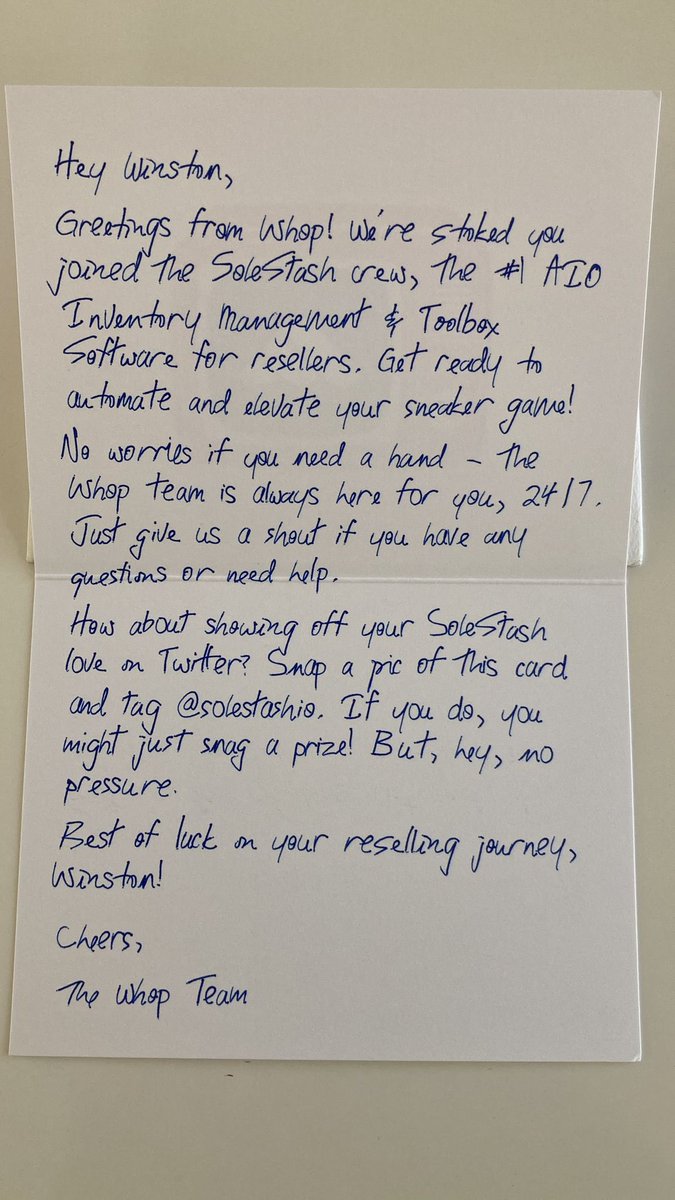 Hey Winston,
Greetings from Whop! We're stoked you
joined the SoleStash crew, the #1 AIO
Inventory Management & Toolbox
Software for resellers. Get ready to
automate and elevate your sneaker game!
No worries if you need a hand – the
Whop team is always here for you, 24/7.
Just give us a shout if you have any
questions or need help.
How about showing off your SoleStash
love on Twitter? Snap a pic of this card
and tag @solestashio. If you do, you
might just snag a prize! But, hey, no
pressure.
Best of luck on your reselling journey,
Winston!
Cheers,
The Whop Team